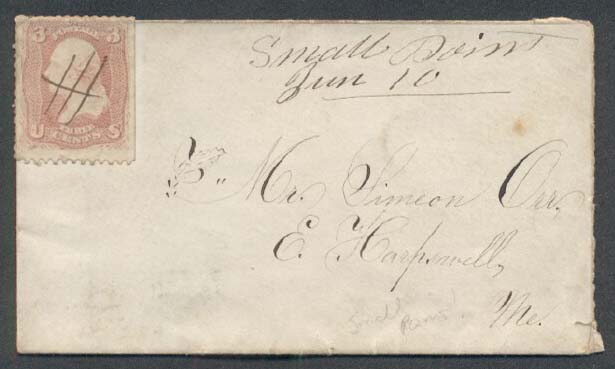 3 POSTAGE 3
U THREE S
CENTS
Small Point
Jun 10
" Mr. Simeon Orr.
E. Harpswell,
Me.
Small
Point